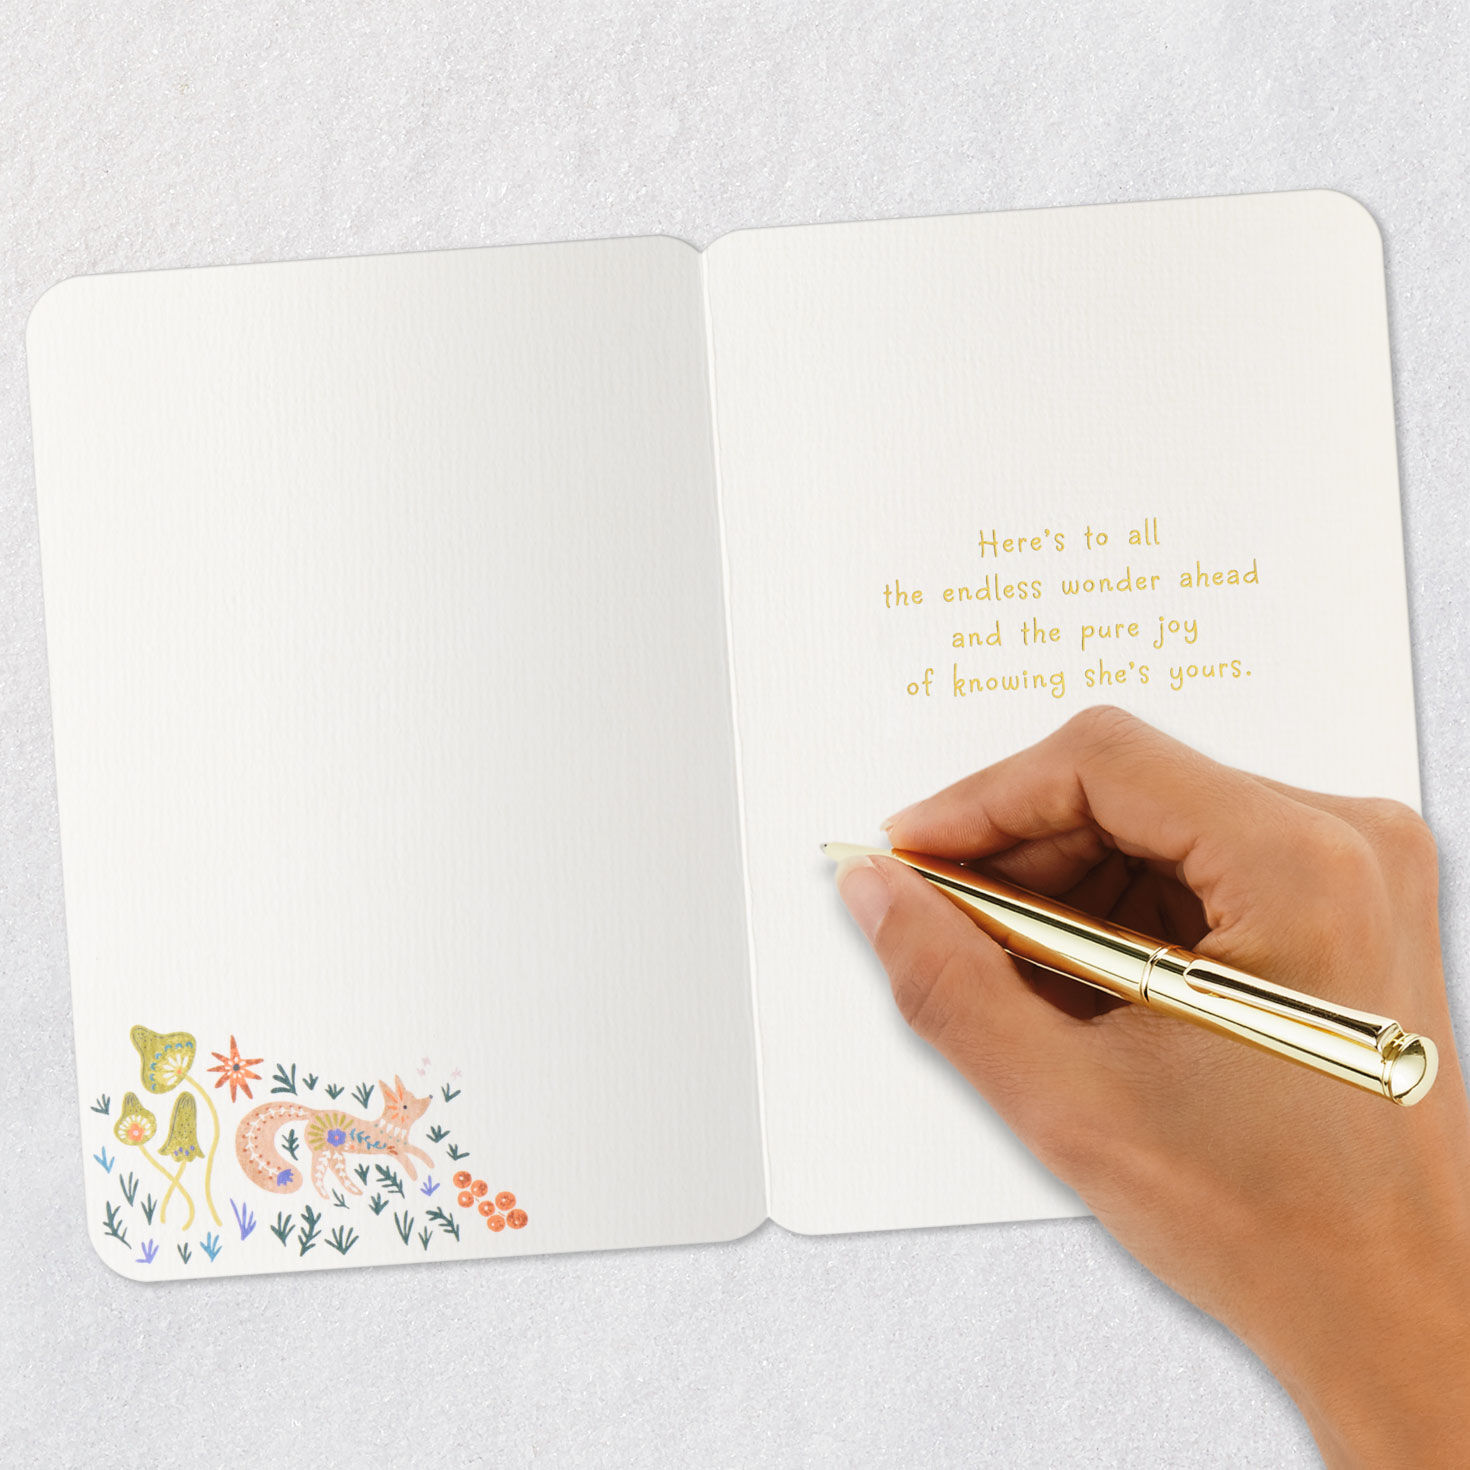 Here's to all
the endless wonder ahead
and the pure joy
of knowing she's yours.